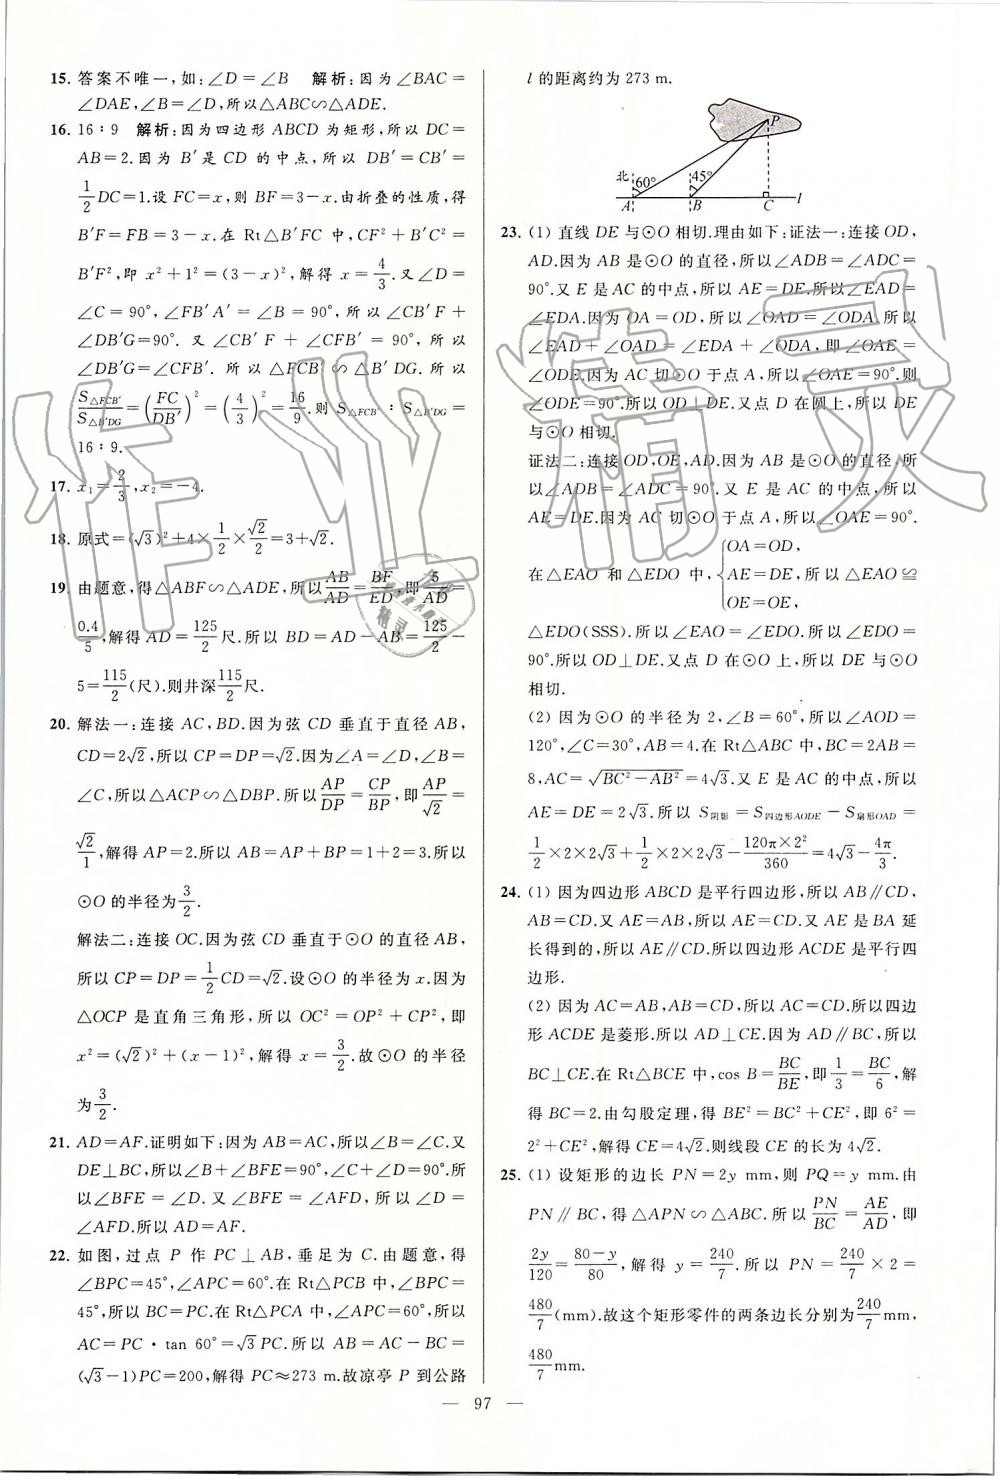 15. 答案不唯一,如:∠D=∠B 解析:因为∠BAC=
∠DAE,∠B=∠D,所以△ABC∽△ADE.
16. 16∶9 解析:因为四边形 ABCD 为矩形,所以 DC=
AB=2.因为 B′是 CD 的中点,所以 DB′=CB′=
1/2 DC=1.设 FC=x,则 BF=3-x.由折叠的性质,得
B′F=FB=3-x.在 Rt△B′FC 中,CF²+B′C²=
B′F²,即 x²+1²=(3-x)²,解得 x=4/3.又∠D=
∠C=90°,∠FB′A′=∠B=90°,所以∠CB′F+
∠DB′G=90°.又∠CB′F+∠CFB′=90°,所以
∠DB′G=∠CFB′.所以△FCB′∽△B′DG.所以
S△FCB′/S△B′DG=(FC/DB′)²=(4/3)²=16/9.则 S△FCB′∶S△B′DG=
16∶9.
17. x₁=2/3,x₂=-4.
18. 原式=(√3)²+4×1/2×√2/2=3+√2.
19. 由题意,得△ABF∽△ADE,所以AB/AD=BF/ED,即5/AD=
0.4/5,解得 AD=125/2尺.所以 BD=AD-AB=125/2-
5=115/2(尺).则井深115/2尺.
20. 解法一:连接 AC,BD.因为弦 CD 垂直于直径 AB,
CD=2√2,所以 CP=DP=√2.因为∠A=∠D,∠B=
∠C,所以△ACP∽△DBP.所以AP/DP=CP/BP,即AP/√2=
√2/1,解得 AP=2.所以 AB=AP+BP=1+2=3.所以
⊙O 的半径为3/2.
解法二:连接 OC.因为弦 CD 垂直于⊙O 的直径 AB,
所以 CP=DP=1/2 CD=√2.设⊙O 的半径为 x.因为
△OCP 是直角三角形,所以 OC²=OP²+CP²,即
x²=(√2)²+(x-1)²,解得 x=3/2.故⊙O 的半径
为3/2.
21. AD=AF.证明如下:因为 AB=AC,所以∠B=∠C.又
DE⊥BC,所以∠B+∠BFE=90°,∠C+∠D=90°.所
以∠BFE=∠D.又∠BFE=∠AFD,所以∠D=
∠AFD.所以 AD=AF.
22. 如图,过点 P 作 PC⊥AB,垂足为 C.由题意,得
∠BPC=45°,∠APC=60°.在 Rt△PCB 中,∠BPC=
45°,所以 BC=PC.在 Rt△PCA 中,∠APC=60°,所以
AC=PC·tan 60°=√3PC.所以 AB=AC-BC=
(√3-1)PC=200,解得 PC≈273 m.故凉亭 P 到公路
l 的距离约为 273 m.
P
北 60° 45°
A B C l
23. (1) 直线 DE 与⊙O 相切.理由如下:证法一:连接 OD,
AD.因为 AB 是⊙O 的直径,所以∠ADB=∠ADC=
90°.又 E 是 AC 的中点,所以 AE=DE.所以∠EAD=
∠EDA.因为 OA=OD,所以∠OAD=∠ODA.所以
∠EAD+∠OAD=∠EDA+∠ODA,即∠OAE=
∠ODE.因为 AC 切⊙O 于点 A,所以∠OAE=90°.则
∠ODE=90°.所以 OD⊥DE.又点 D 在圆上,所以 DE
与⊙O 相切.
证法二:连接 OD,OE,AD.因为 AB 是⊙O 的直径,所
以∠ADB=∠ADC=90°.又 E 是 AC 的中点,所以
AE=DE.因为 AC 切⊙O 于点 A,所以∠OAE=90°.
在△EAO 和△EDO 中,{OA=OD, AE=DE, OE=OE, 所以△EAO≌
△EDO(SSS).所以∠EAO=∠EDO.所以∠EDO=
90°.所以 OD⊥DE.又点 D 在⊙O 上,所以 DE 与⊙O
相切.
(2) 因为⊙O 的半径为 2,∠B=60°,所以∠AOD=
120°,∠C=30°,AB=4.在 Rt△ABC 中,BC=2AB=
8,AC=√(BC²-AB²)=4√3.又 E 是 AC 的中点,所以
AE=DE=2√3.所以 S阴影=S四边形AODE-S扇形OAD=
1/2×2×2√3+1/2×2×2√3-120π×2²/360=4√3-4π/3.
24. (1) 因为四边形 ABCD 是平行四边形,所以 AB∥CD,
AB=CD.又 AE=AB,所以 AE=CD.又 AE 是 BA 延
长得到的,所以 AE∥CD.所以四边形 ACDE 是平行四
边形.
(2) 因为 AC=AB,AB=CD,所以 AC=CD.所以四边
形 ACDE 是菱形.所以 AD⊥CE.因为 AD∥BC,所以
BC⊥CE.在 Rt△BCE 中,cos B=BC/BE,即1/3=BC/6,解
得 BC=2.由勾股定理,得 BE²=BC²+CE²,即 6²=
2²+CE²,解得 CE=4√2.则线段 CE 的长为 4√2.
25. (1) 设矩形的边长 PN=2y mm,则 PQ=y mm.由
PN∥BC,得△APN∽△ABC.所以PN/BC=AE/AD,即
2y/120=80-y/80,解得 y=240/7.所以 PN=240/7×2=
480/7(mm).故这个矩形零件的两条边长分别为240/7mm,
480/7mm.
— 97 —
作业精灵